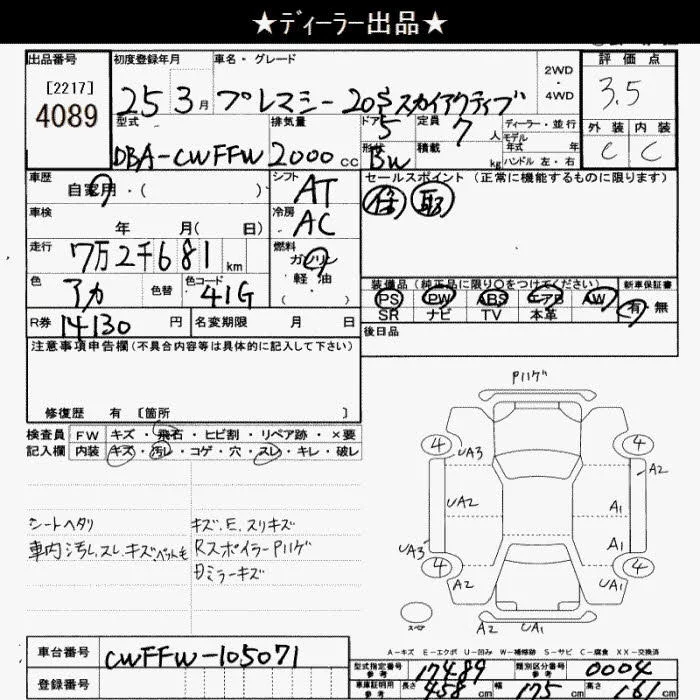 ★ディーラー出品★
出品番号
[2217]
4089
初度登録年月
25 3月
車名・グレード
プレマシー 20S スカイアクティブ
2WD
・
4WD
評価点
3.5
外装 内装
C C
型式
DBA-CWFFW
排気量
2000 cc
ドア
5
形状
BW
定員
7 人
積載
kg
ディーラー・並行
モデル
年式 年
ハンドル 左・右
車歴
自家用・( )
シフト
AT
セールスポイント (正常に機能するものに限ります)
車検
年 月( 日)
冷房
AC
走行
7万2千681 km
燃料
ガソリン
軽油
( )
色
アカ
色替
色コード
41G
装備品(純正品に限り○をつけてください)
新車保証書
PS PW ABS エアB AW
有・無
SR ナビ TV 本革
R券 14130 円
名変期限 月 日
後日品
注意事項申告欄(不具合内容等は具体的に記入して下さい)
修復歴 有 〔箇所 〕
検査員 FW キズ・飛石・ヒビ割・リペア跡・×要
記入欄 内装 キズ・汚レ・コゲ・穴・スレ・キレ・破レ
シートヘタリ
車内汚レ.スレ.キズ.ペット毛
キズ.E.スリキズ
RスポイラーPハゲ
Dミラーキズ
Pハゲ
4 4
UA3
A2
UA2
A1
A1
UA3
4 4
A2
UA1
スペア
A2 UA1
A-キズ E-エクボ U-凹み W-補修跡 S-サビ C-腐食 XX-交換済
車台番号
CWFFW-105071
登録番号
型式指定番号
参考
17489
類別区分番号
参考
0004
車庫証明用
参考
長さ 458 cm 幅 175 cm 高さ 161 cm